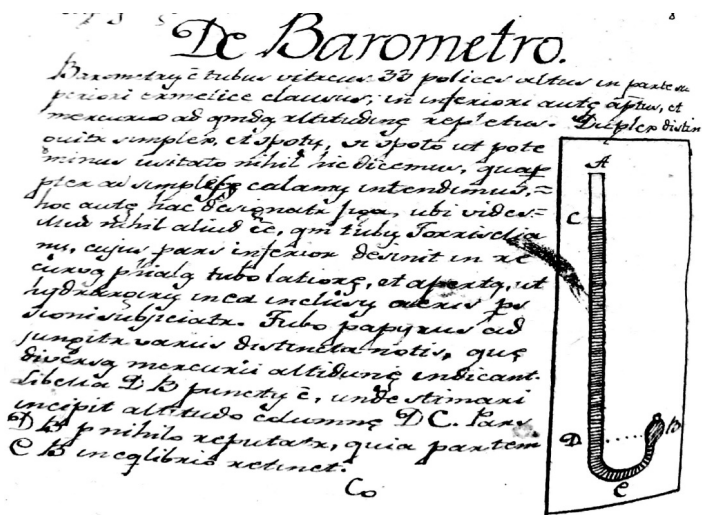 De Barometro.
Barometrũ ẽ tubus vitreus 33 polices altus in parte su
periori ermetice clausus, in inferiori autẽ apertus, et
mercurio ad altitudinẽ repletus. Duplex distin
guitr simplex, et cpotũ, si cpoto ut pote
minus usitato nihil hic dicemus,
ad simplex calamũ intendimus, =
hoc autẽ hac designatr ubi vides =
nihil aliud ẽẽ, qm tubũ Torriscelia
nũ, cujus pars inferior desinit in re
tubo latiorẽ, et apertã, ut
in ea inclusũ aeris
sioni subjiciatr. Tubo papyrus ad
jungitr variis distincta notis, quę
diversã mercurii altidunẽ indicant.
Libella DB punctũ ẽ, unde stimari
incipit altitudo columnę DC. Pars
DB p nihilo reputatr, quia partem
eB in eqlibrio retinet.
Co
A
C
D
B
e